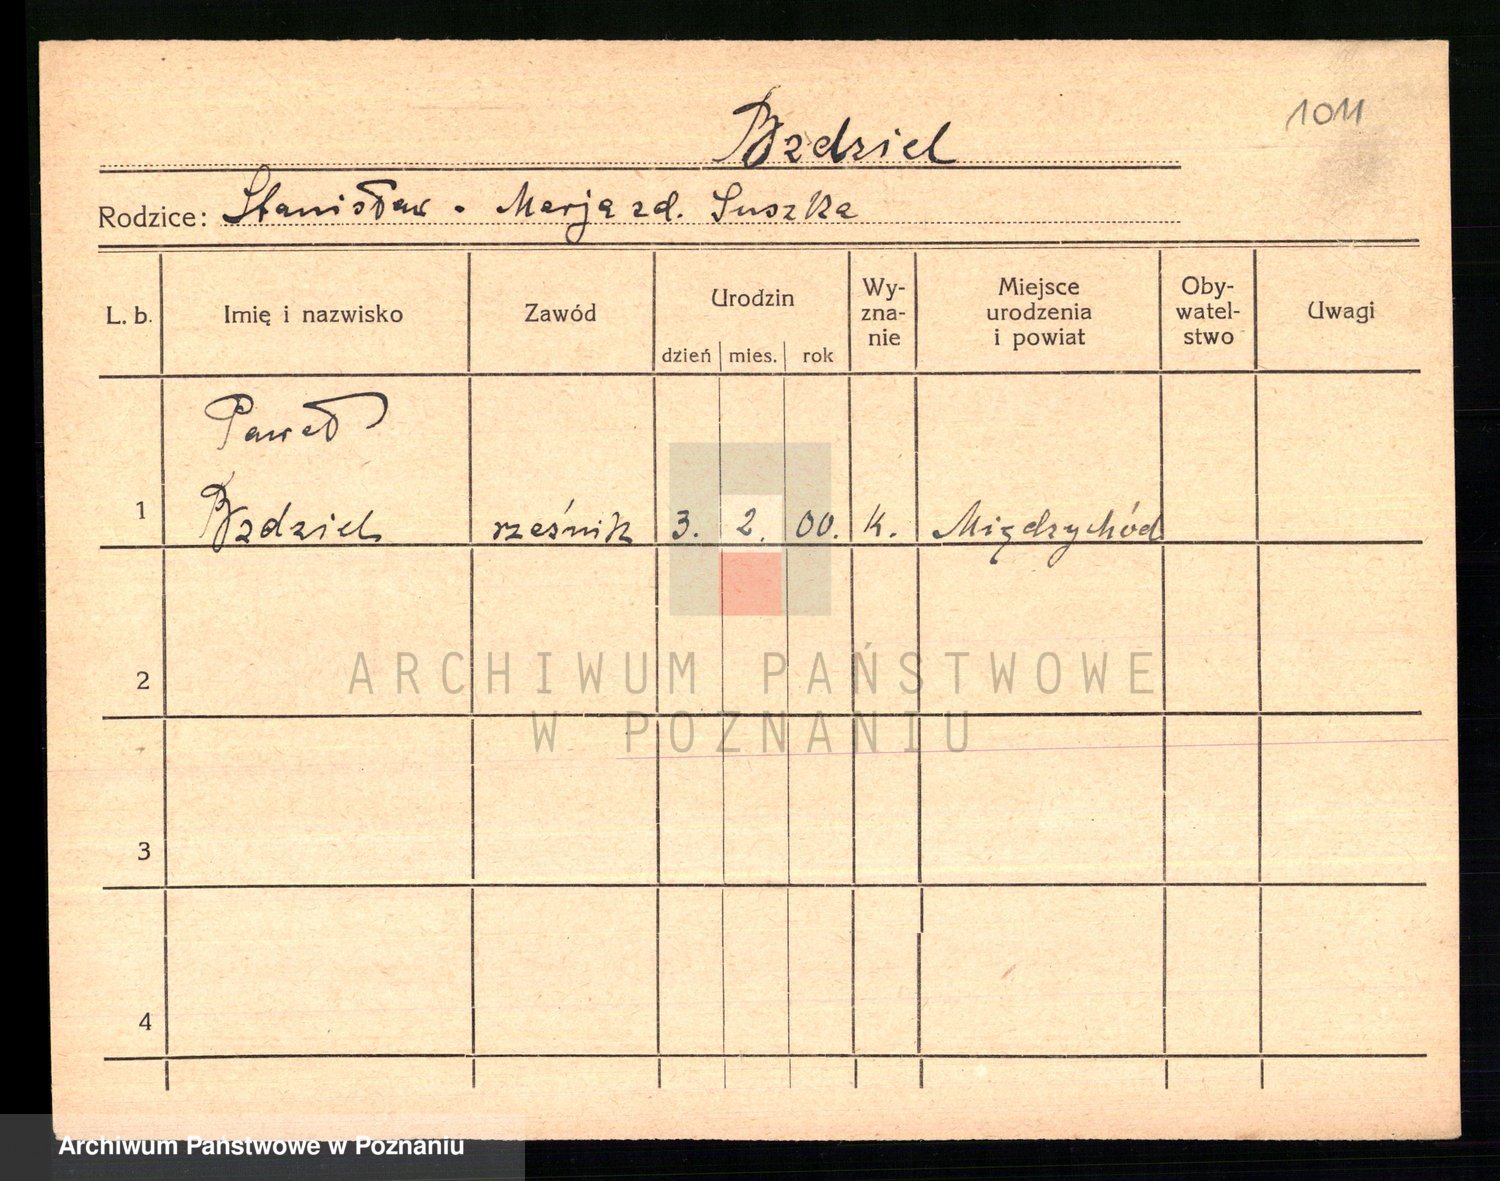 1011
Bzdziel
Rodzice: Stanisław - Marja zd. Suszka
L. b.
Imię i nazwisko
Zawód
Urodzin
dzień mies. rok
Wy-
zna-
nie
Miejsce
urodzenia
i powiat
Oby-
watel-
stwo
Uwagi
Paweł
1 Bzdziel rzeźnik 3. 2. 00. K. Międzychód
2
ARCHIWUM PAŃSTWOWE
W POZNANIU
3
4
Archiwum Państwowe w Poznaniu